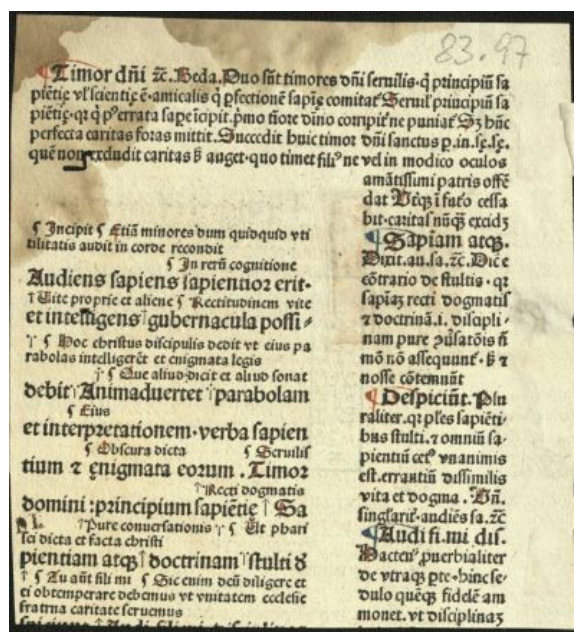 83.97
¶Timor dn̄i ⁊c̄. Beda. Duo sn̄t timores dn̄i seruilis·q̄ principiū sa
piētię vl̓ scientię ē·amicalis q̄ ꝑfectionē sapię comitat᷑ Seruil̓ principiū sa
piētię·qr q̄ pꝰ errata sapē īcipit p̄mo tiōre dn̄io corripit᷑ ne puniat᷑ Sꝫ hūc
perfecta caritas foras mittit. Succedit huic timor dn̄i sanctus ꝑ.in.sę.sę.
quē non excludit caritas ꝫ auget·quo timet filiꝰ ne vel in modico oculos
amātissimi patris offē
dat Utqꝫ ī fut᷑o cessa
bit·caritas nūqꝫ excidꝫ
¶ Incipit ¶ Etiā minores dum quidquid vti
tilitatis audit in corde recondit
¶ In rerū cognitione
Audiens sapiens sapientior erit·
↑ Uite proprie et aliene ¶ Rectitudinem vite
et intelligens↑gubernacula possi⸗
↑ ¶ Hoc christus discipulis dedit vt eius pa
rabolas intelligerēt et enigmata legis
↑ ¶ Que aliud dicit et aliud sonat
debit↑Animaduertet↑parabolam
¶ Eius
et interpretationem·verba sapien
¶ Obscura dicta ¶ Seruilis
tium ⁊ ęnigmata eorum .Timor
↑Recti dogmatis
domini :principium sapiētię↑Sa
↑Pure conuersationis ↑ ¶ Ut phari
sei dicta et facta christi
pientiam atqꝫ↑doctrinam↑stulti ð
↑ ¶ Au aūt fili mi ¶ Sic enim deū diligere et
ei obtemperare debemus vt vnitatem ecclesie
fratrna caritate seruemus
¶Sapiam atqꝫ.
Dixit.au.sa.⁊c̄. Dic̄ e
cōtrario de stultis·qr
sapiāꝫ recti dogmatis
⁊ doctrinā.i. discipli
nam pure 9ūsatōis n̄
mō nō assequunt᷑·ꝫ ⁊
nosse cōtemnūt
¶Despiciūt. Plu
raliter.qr ples sapiēti⸗
bus stulti.⁊ omniū sa⸗
pientiū cetꝰ vnanimis
est.errantiū dissimilis
vita et dogma. Uñ.
singlarit᷑·audiēs sa.⁊c̄
¶Audi fi.mi dis.
Hacten᷒ puerbialiter
de vtraqꝫ pte·hinc se⸗
dulo quēqꝫ fidelē am
monet.vt disciplinaꝫ